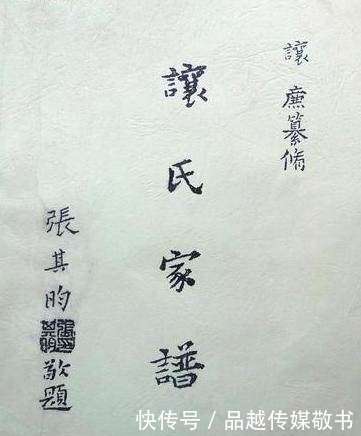 讓廉纂脩
讓氏家譜
張其昀敬題
快传号／品越传媒敬书